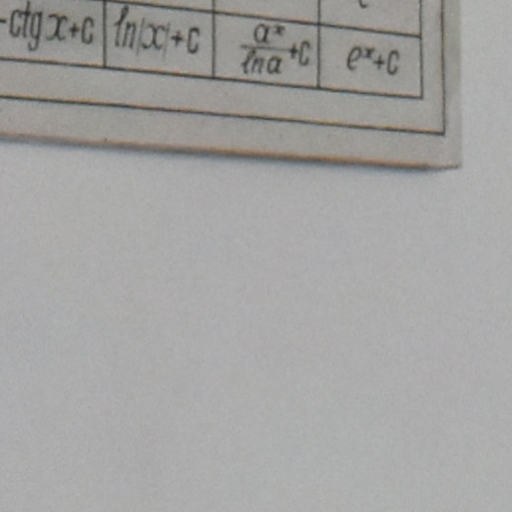 -ctg x+C ln|x|+C a^x/ln a +C e^x+C